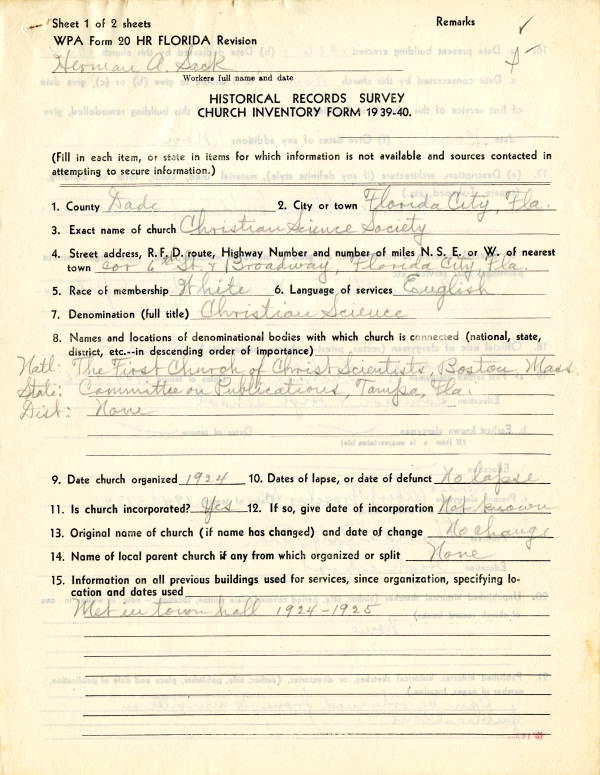 Sheet 1 of 2 sheets Remarks ✓
WPA Form 20 HR FLORIDA Revision
Herman A. Sack
Workers full name and date
HISTORICAL RECORDS SURVEY
CHURCH INVENTORY FORM 1939-40.
(Fill in each item, or state in items for which information is not available and sources contacted in
attempting to secure information.)
1. County Dade 2. City or town Florida City, Fla.
3. Exact name of church Christian Science Society
4. Street address, R. F. D. route, Highway Number and number of miles N. S. E. or W. of nearest
town cor 6th St. & Broadway, Florida City Fla.
5. Race of membership White 6. Language of services English
7. Denomination (full title) Christian Science
8. Names and locations of denominational bodies with which church is connected (national, state,
district, etc.--in descending order of importance)
Natl: The First Church of Christ Scientists, Boston Mass.
State: Committee on Publications, Tampa, Fla.
Dist: None
9. Date church organized 1924 10. Dates of lapse, or date of defunct No lapse
11. Is church incorporated? Yes 12. If so, give date of incorporation Not known
13. Original name of church (if name has changed) and date of change No change
14. Name of local parent church if any from which organized or split None
15. Information on all previous buildings used for services, since organization, specifying lo-
cation and dates used
Met in town hall 1924-1925